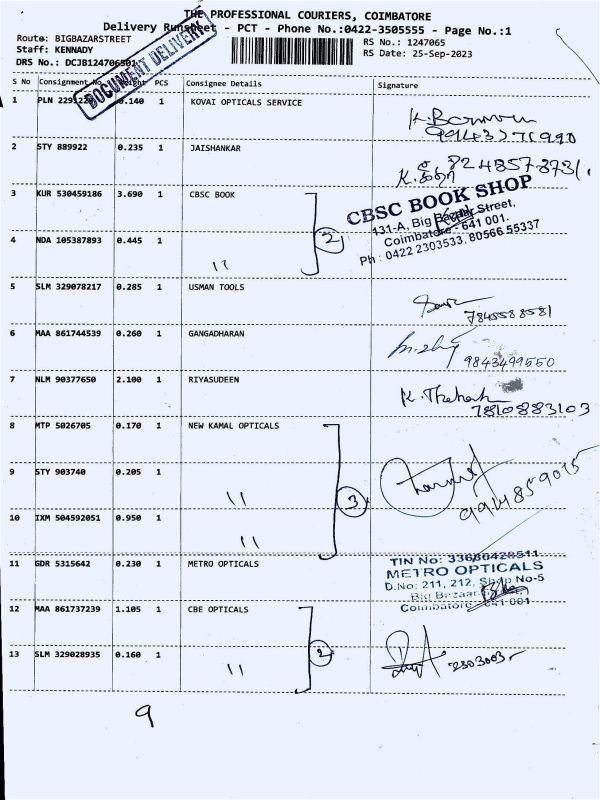 THE PROFESSIONAL COURIERS, COIMBATORE
Delivery Runsheet - PCT - Phone No.:0422-3505555 - Page No.:1
Route: BIGBAZARSTREET
RS No.: 1247065
Staff: KENNADY
RS Date: 25-Sep-2023
DRS No.: DCJB124706501
DOCUMENT DELIVERY
S No Consignment No. Weight PCS Consignee Details Signature
1 PLN 0.140 1 KOVAI OPTICALS SERVICE
2 STY 889922 0.235 1 JAISHANKAR
8248578731.
3 KUR 530459186 3.690 1 CBSC BOOK
2
CBSC BOOK SHOP
131-A, Big Bazaar Street,
Coimbatore - 641 001.
Ph : 0422 2303533, 80566 55337
4 NDA 105387893 0.445 1 "
5 SLM 329078217 0.285 1 USMAN TOOLS
7845588581
6 MAA 861744539 0.260 1 GANGADHARAN
9843499550
7 NLM 90377650 2.100 1 RIYASUDEEN
7810883103
8 MTP 5026705 0.170 1 NEW KAMAL OPTICALS
9 STY 903740 0.205 1 "
3
9914859015
10 IXM 504592051 0.950 1 "
11 GDR 5315642 0.230 1 METRO OPTICALS
TIN No: 33660428511
METRO OPTICALS
D.No: 211, 212, Shop No-5
Big Bazaar
Coimbatore - 641 001
12 MAA 861737239 1.105 1 CBE OPTICALS
2
2303003
13 SLM 329028935 0.160 1 "
9